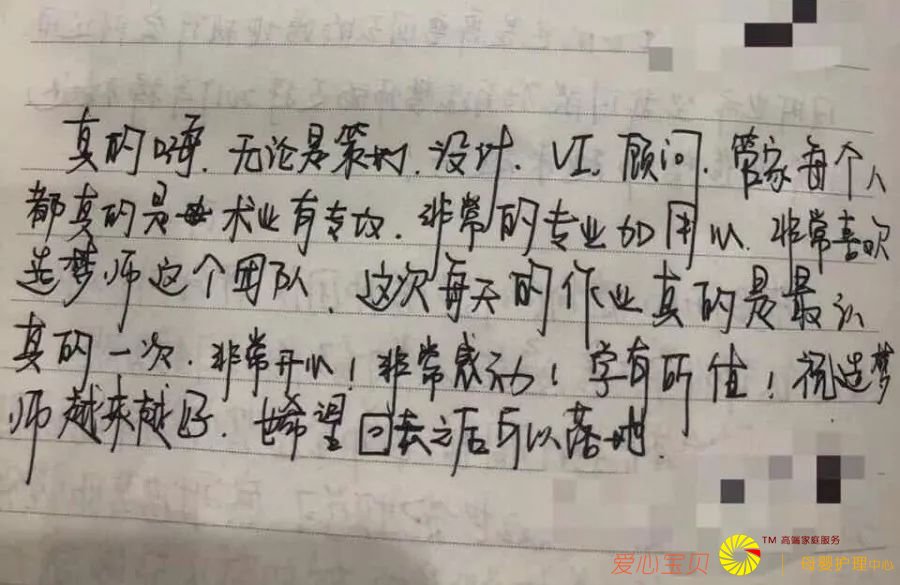 真的嗨，无论是策划，设计，VI，顾问，管家每个人
都真的是术业有专攻，非常的专业加用心，非常喜欢
造梦师这个团队，这次每天的作业真的是最认
真的一次，非常开心！非常感动！学有所值！祝造梦
师越来越好，也希望回去之后可以落地
爱心宝贝 TM 高端家庭服务
母婴护理中心